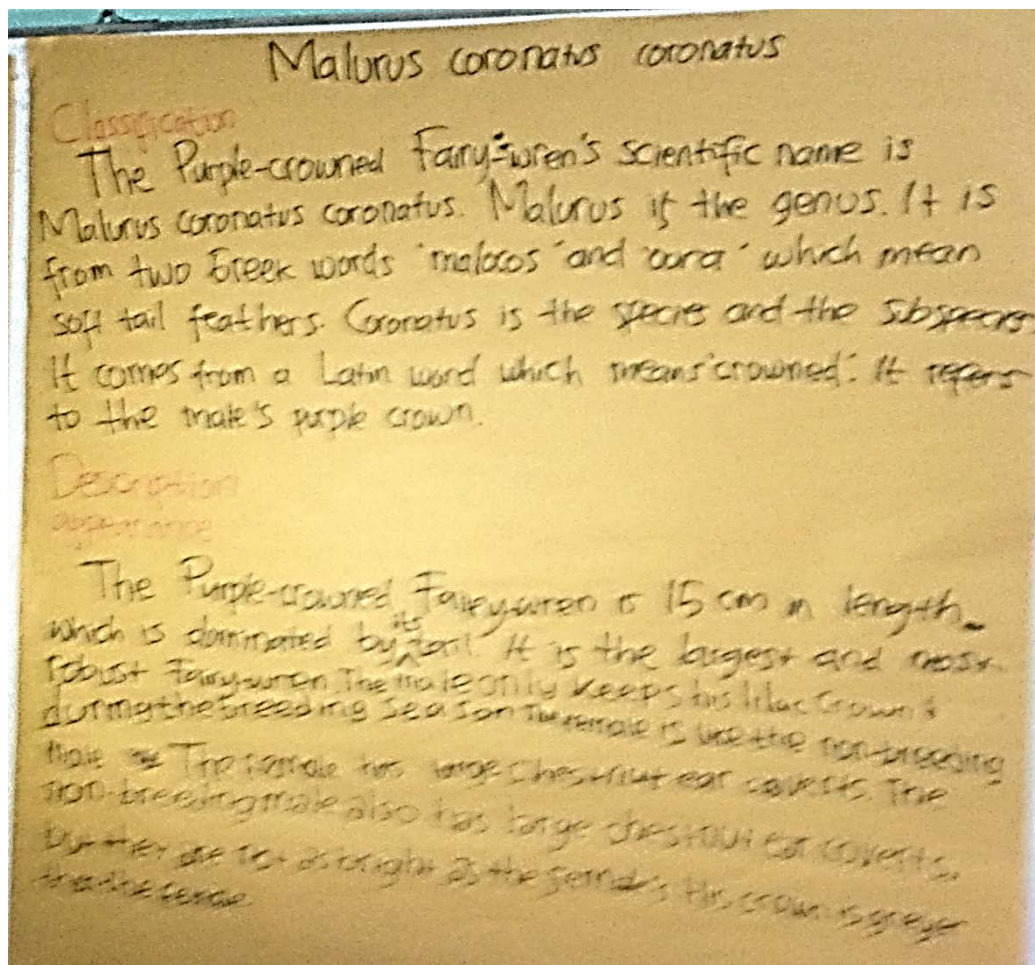 Malurus coronatus coronatus
Classification
The Purple-crowned Fairy-wren's scientific name is
Malurus coronatus coronatus. Malurus is the genus. It is
from two Greek words 'malocos' and 'oura' which mean
soft tail feathers. Coronatus is the species and the subspecies
It comes from a Latin word which means 'crowned'. It refers
to the male's purple crown.
Description
appearance
The Purple-crowned Fairy-wren is 15 cm in length
which is dominated by its tail. It is the largest and most
robust Fairy-wren. The male only keeps his lilac crown
during the breeding season The female is like the non-breeding
male The female has large chestnut ear coverts. The
non-breeding male also has large chestnut ear coverts,
but they are not as bright as the female's His crown is greyer
than the female